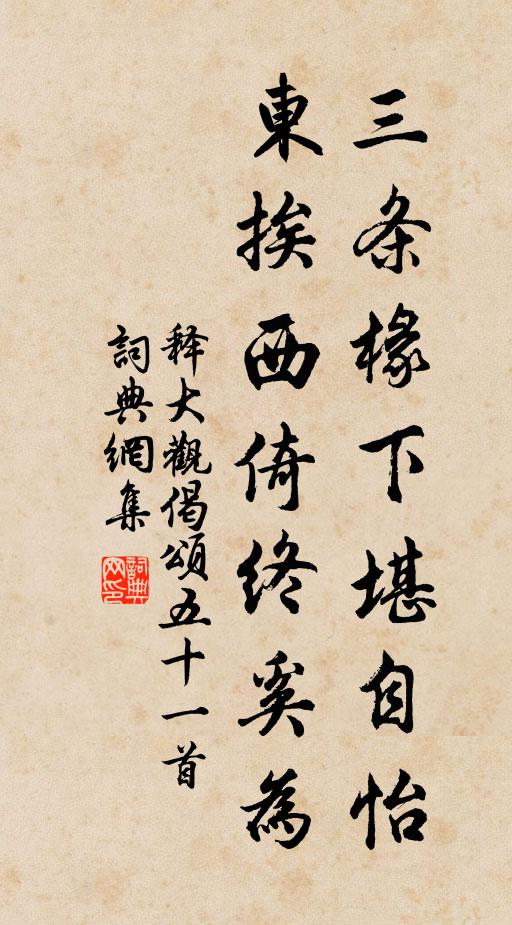 三条椽下堪自怡
東挨西倚終奚為
释大觀偈頌五十一首
詞典網集
詞典网印